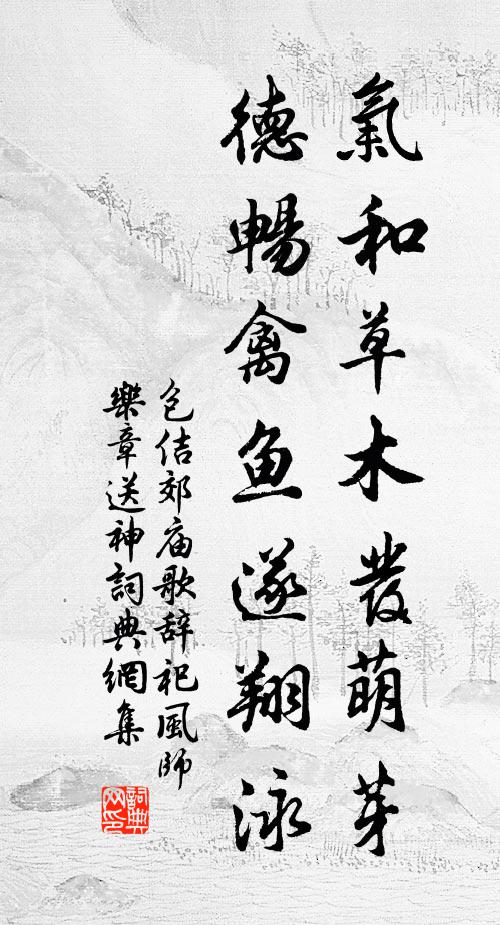 氣和草木發萌芽
德暢禽魚遂翔泳
包佶郊庙歌辞祀風師
樂章送神詞典網集
詞典